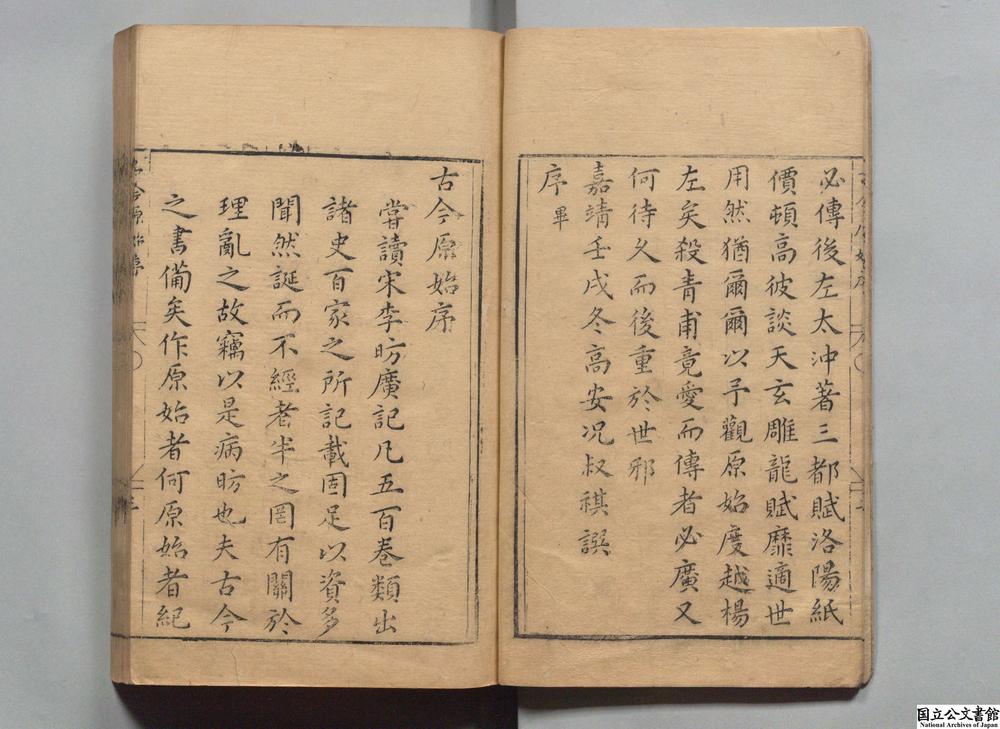 必傳後左太沖著三都賦洛陽紙
價頓高彼談天玄雕龍賦靡適世
用然猶爾爾以予觀原始度越楊
左矣殺青甫竟愛而傳者必廣又
何待久而後重於世邪
嘉靖壬戌冬高安况叔祺譔
序畢
古今原始序
嘗讀宋李昉廣記凡五百卷類出
諸史百家之所記載固足以資多
聞然誕而不經者半之罔有關於
理亂之故竊以是病昉也夫古今
之書備矣作原始者何原始者紀
古今原始序
国立公文書館
National Archives of Japan